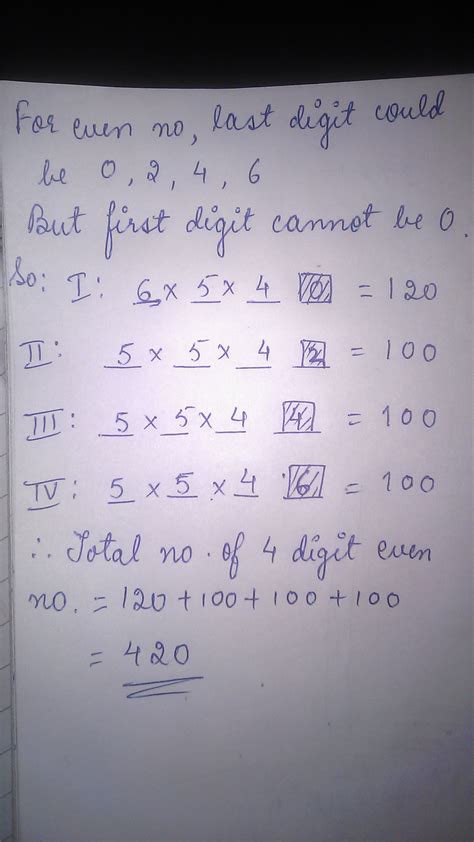 For even no, last digit could
be 0, 2, 4, 6
But first digit cannot be 0.
So: I: 6 × 5 × 4 0 = 120
II: 5 × 5 × 4 2 = 100
III: 5 × 5 × 4 4 = 100
IV: 5 × 5 × 4 6 = 100
∴ Total no. of 4 digit even
no. = 120 + 100 + 100 + 100
= 420